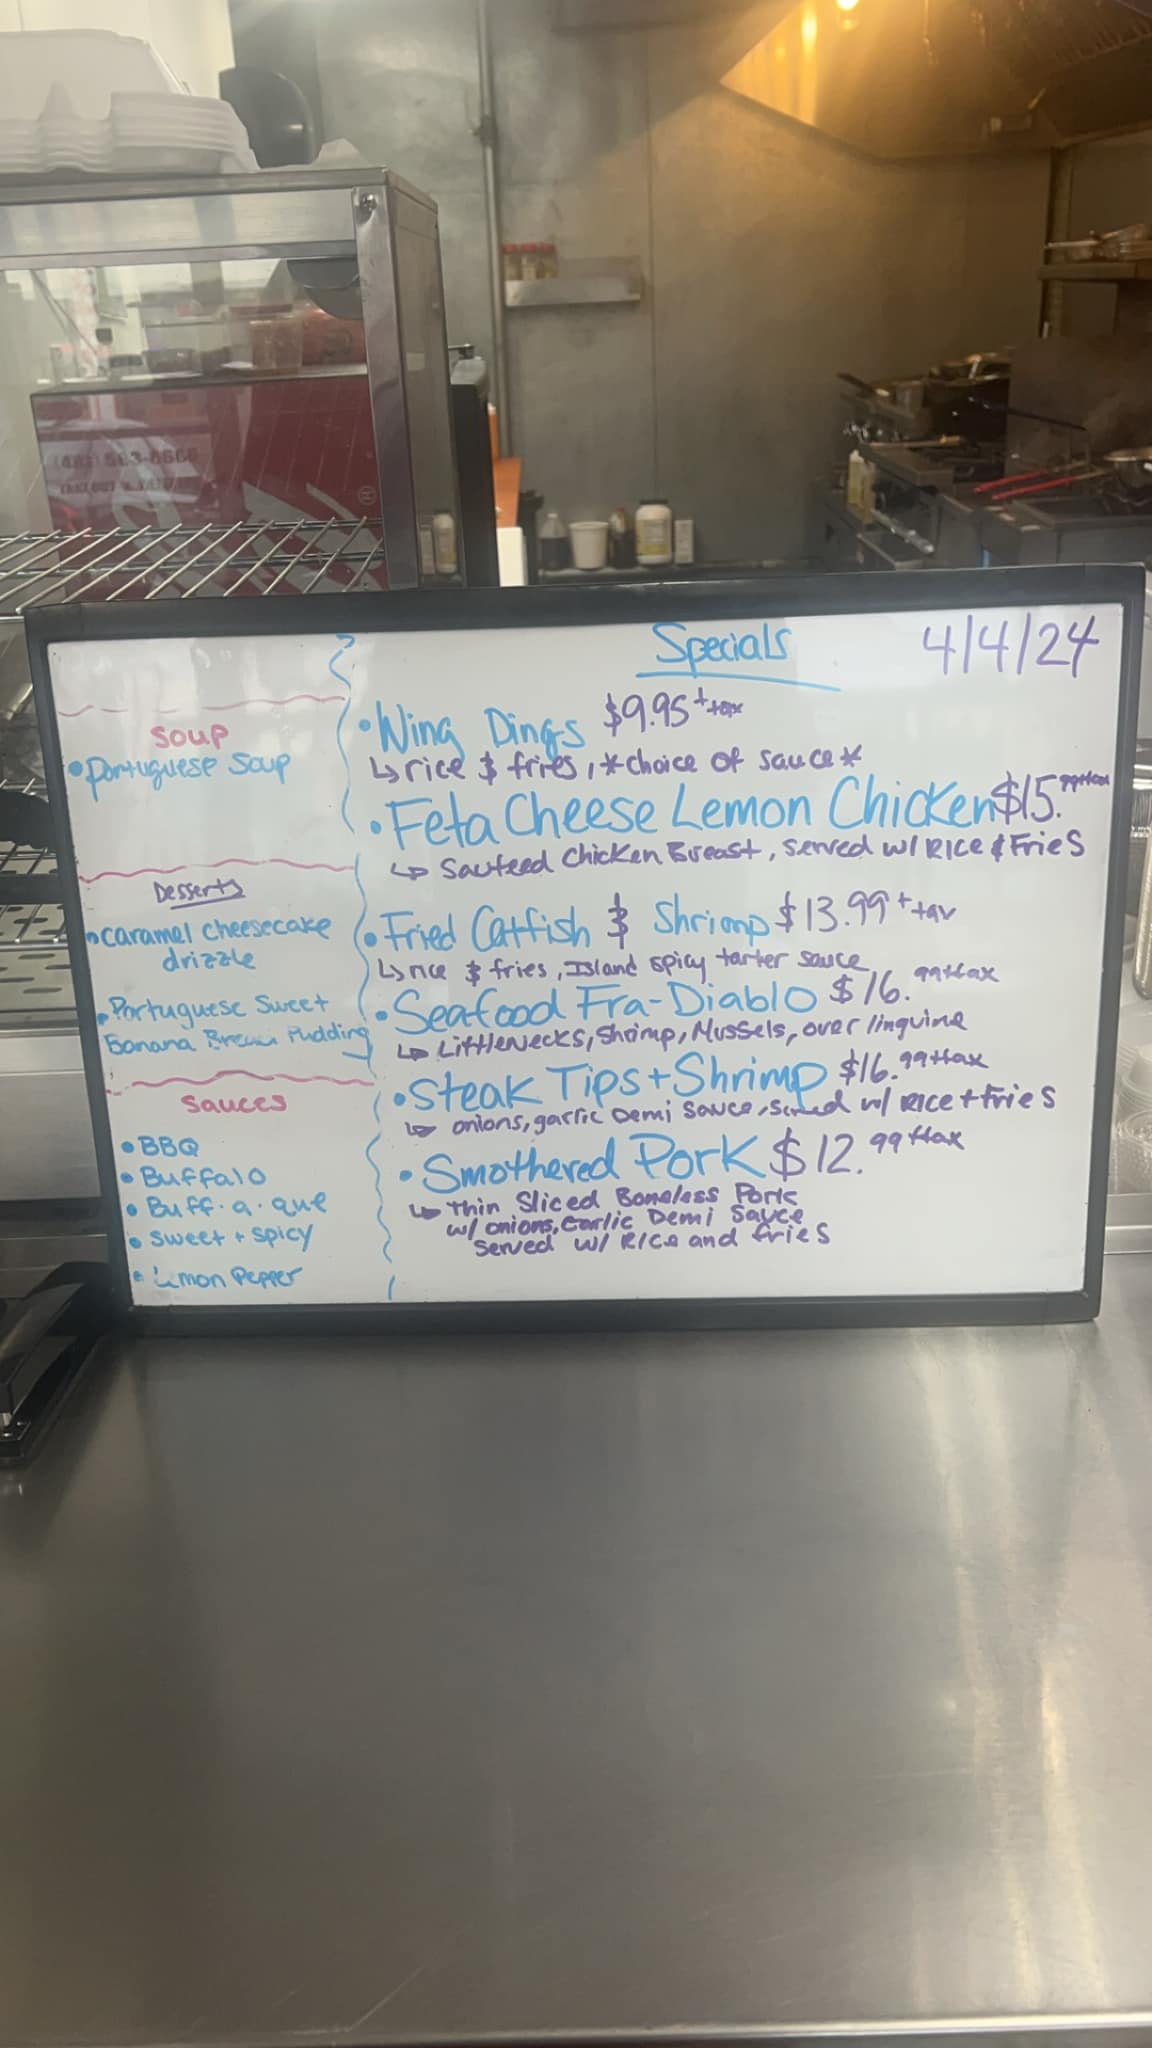 Specials
4/4/24
• Wing Dings $9.95 + tax
↳ rice & fries, *choice of sauce*
• Feta Cheese Lemon Chicken $15.99+tax
↳ Sauteed Chicken Breast, served w/ Rice & Fries
• Fried Catfish & Shrimp $13.99 + tax
↳ rice & fries, Island spicy tarter sauce
• Seafood Fra-Diablo $16.99+tax
↳ Littlenecks, Shrimp, Mussels, over linguine
• Steak Tips + Shrimp $16.99+tax
↳ onions, garlic Demi Sauce, served w/ Rice + Fries
• Smothered Pork $12.99+tax
↳ Thin Sliced Boneless Pork
w/ onions, Garlic Demi Sauce
Served w/ Rice and fries
Soup
• Portuguese Soup
Desserts
• Caramel Cheesecake
drizzle
• Portuguese Sweet
Banana Bread Pudding
Sauces
• BBQ
• Buffalo
• Buff.a.que
• Sweet + Spicy
• Lemon Pepper